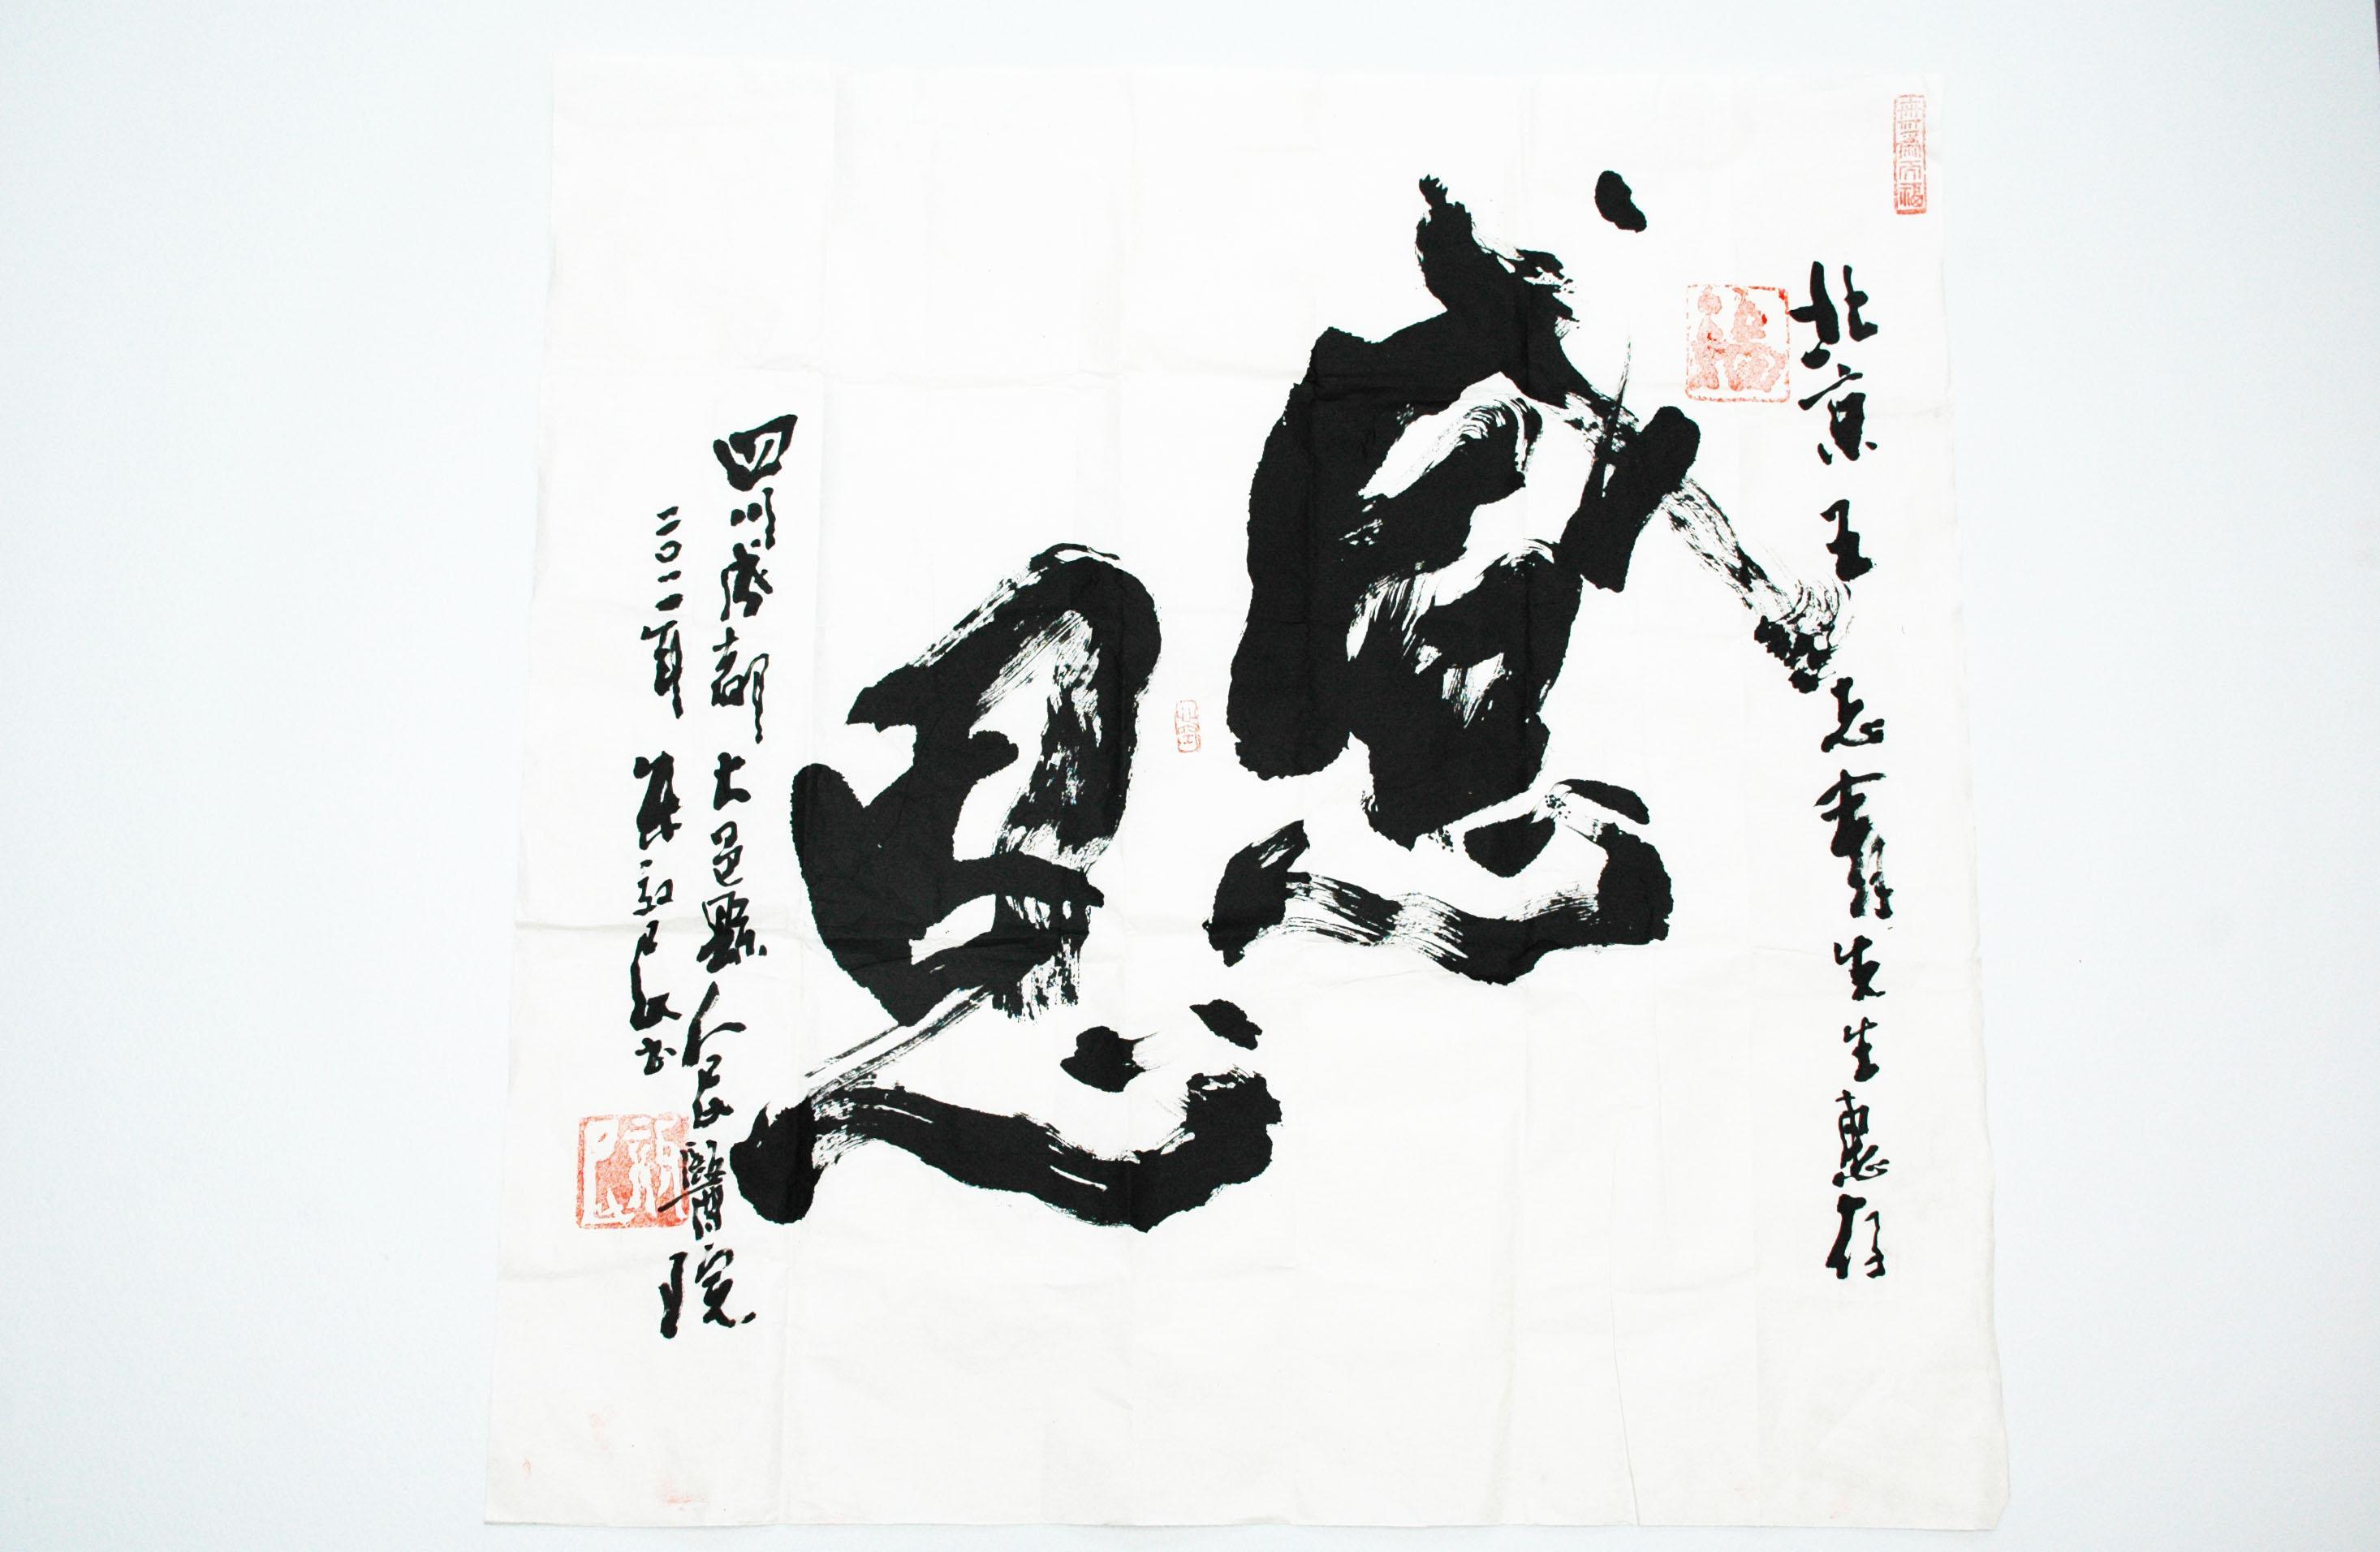 北京 王志春 先生惠存
感恩
四川成都大邑縣人民醫院
二〇一一年
書
福